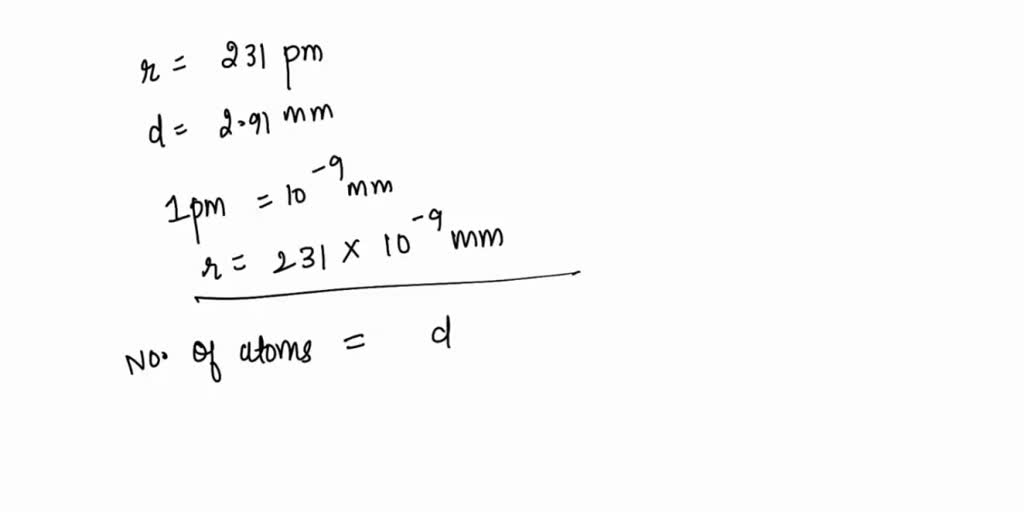 r = 231 pm
d = 2.91 mm
1pm = 10⁻⁹ mm
r = 231 × 10⁻⁹ mm
No. of atoms = d